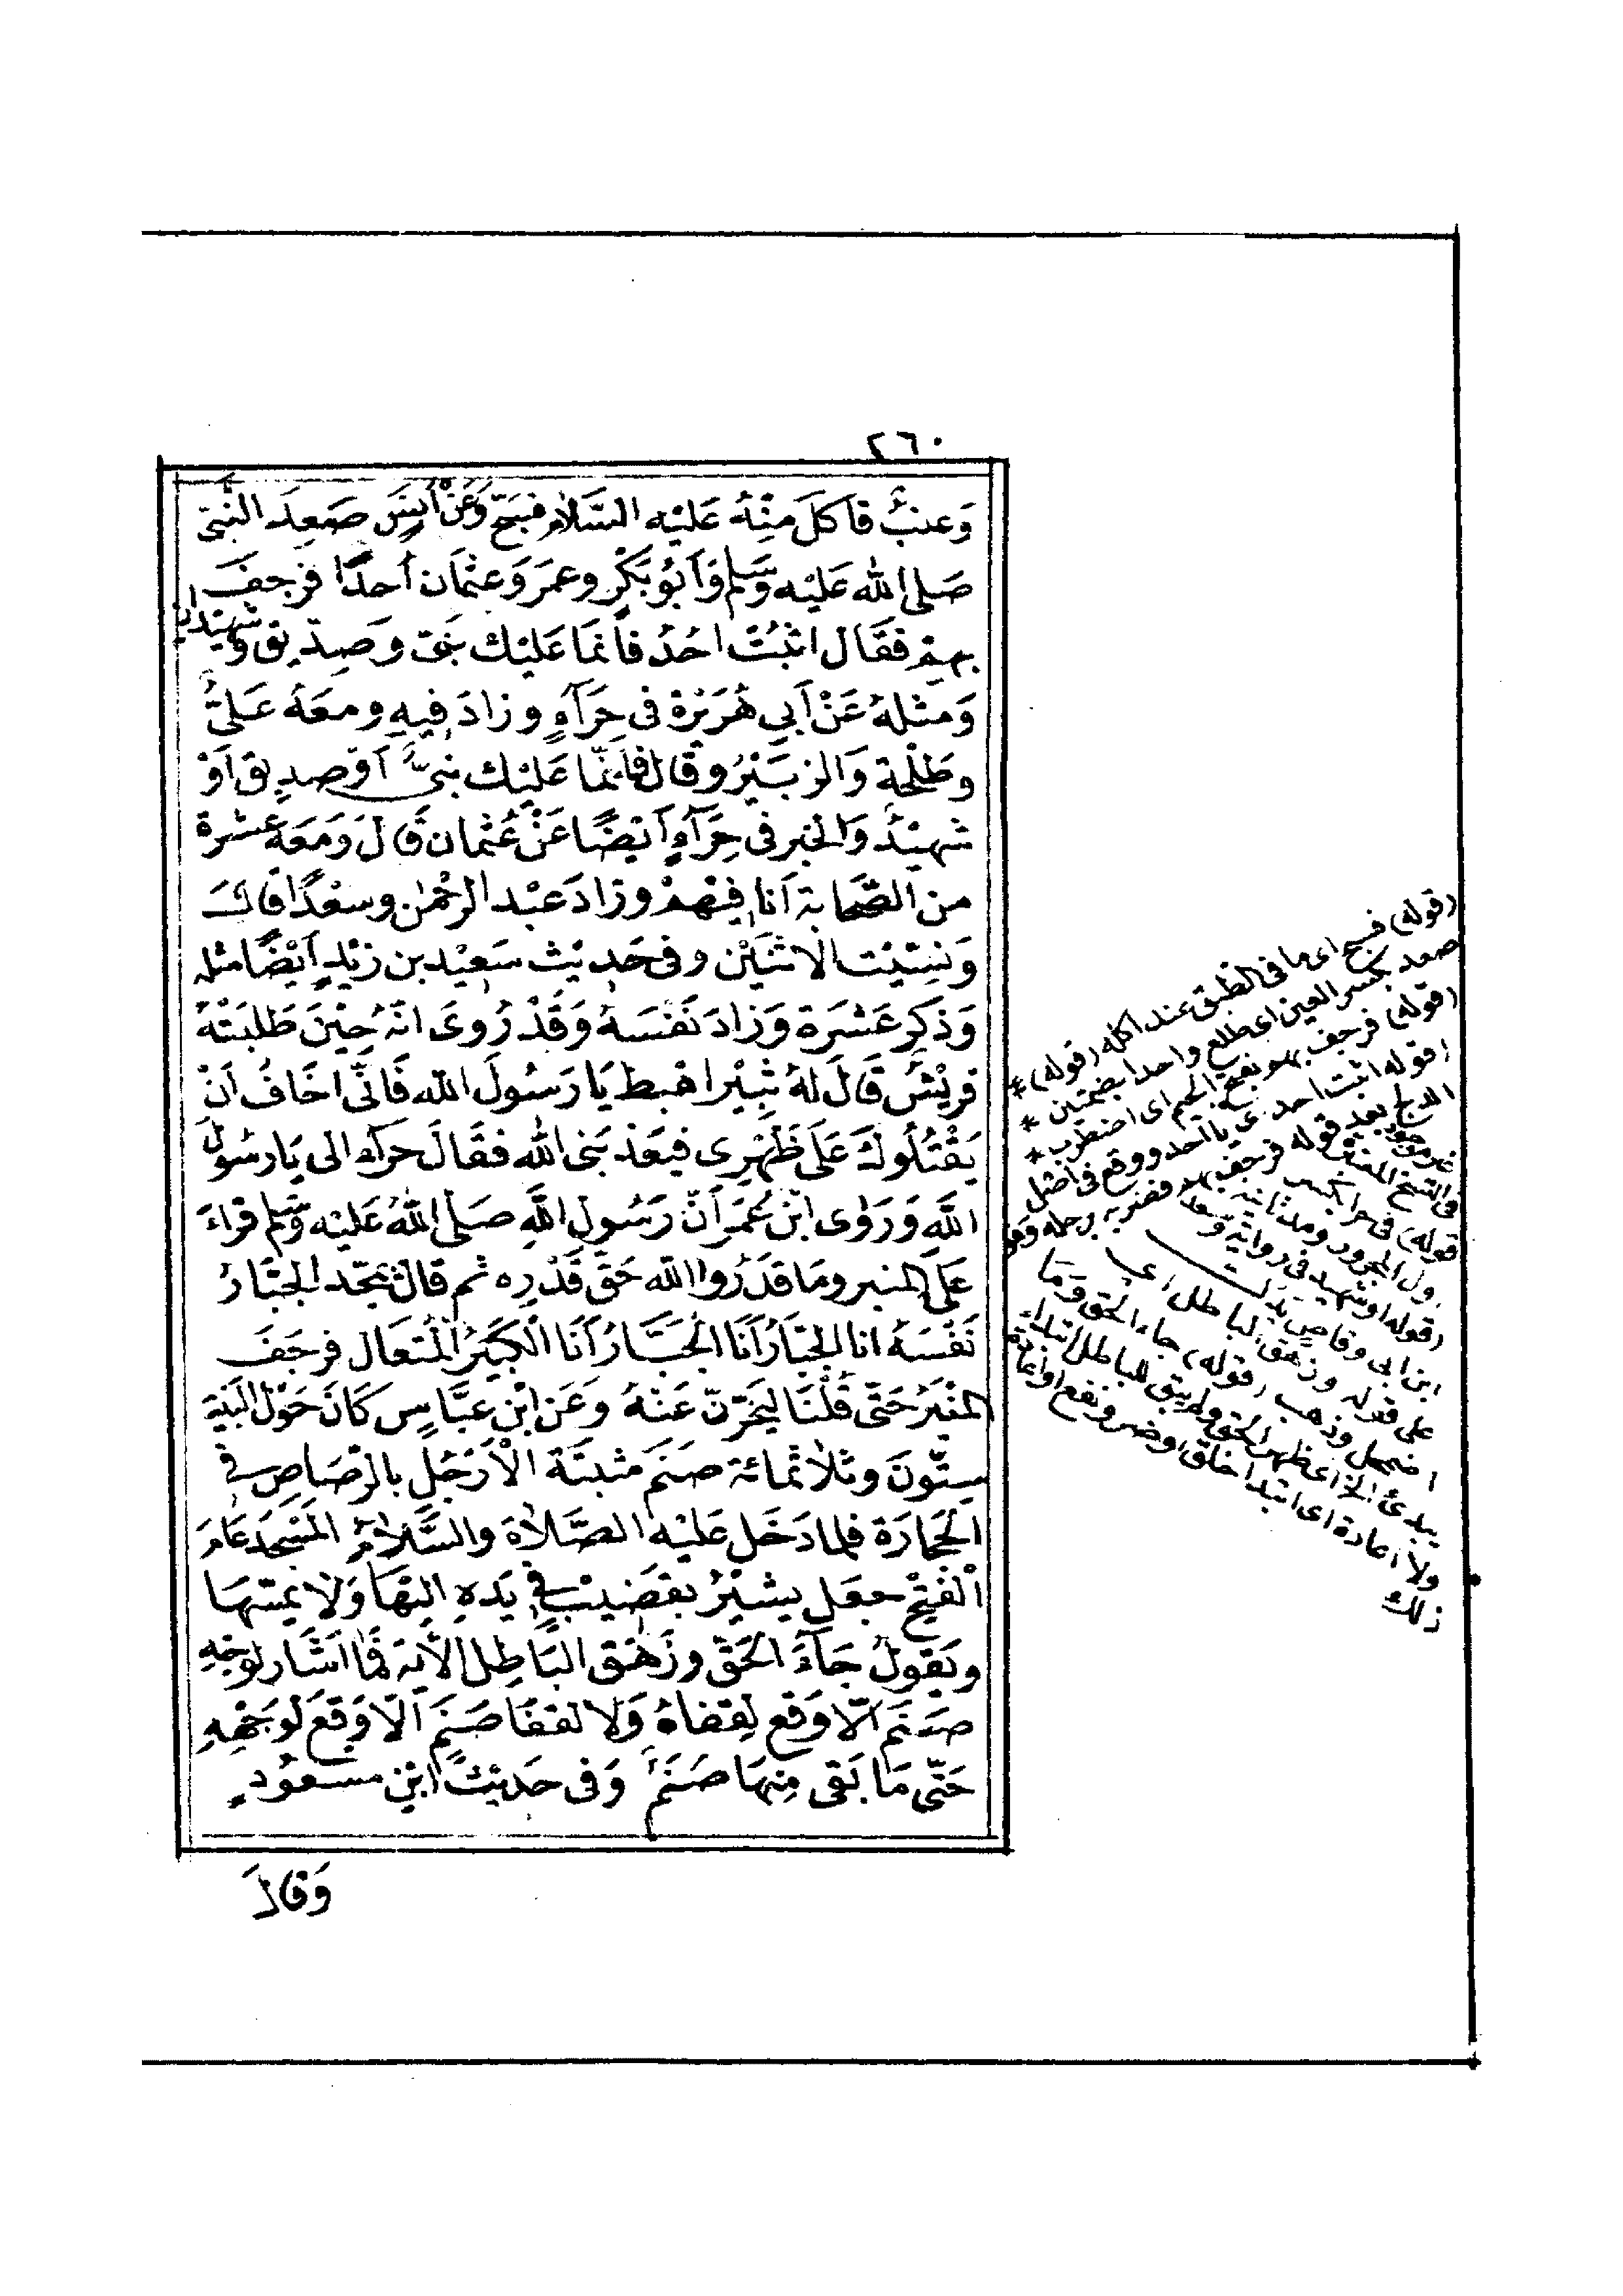 ٢٦٠
وَعنبٌ فاَكَلَ مِنْهُ عَلَيْه السَّلام فسَبَّح وَعَنْ أنَسٍ صَعِدَ النَّبىّ
صَلى الله عَليْه وَسَلم وَاَبُو بَكْرٍ وعمَر وَعثمَان أحدًا فرجفَ
بهمْ فقَال اثبُتْ احُدُ فاِنمَا عَليْك نَبىّ وصِدّيق وَشهيْدانِ
وَمثلهُ عَنْ اَبى هُرَيْرَة فى حِرَآءٍ وزادَ فِيهِ ومعَهُ عَلىٌّ
وطَلْحة وَالزبَيْرُ وقَال فاِنمّا عَليْك نبىٌّ اَوْ صدِيق اَوْ
شهيْدٌ وَالخبر فى حِرَآءٍ اَيْضًا عَنْ عُثمان قَالَ وَمَعَهُ عشرة
من الصَّحَابة اَنا فِيْهمْ وزادَ عَبْد الرحْمٰن وسعْدًا قالَ
وَنسِيْت الاثنَيْن وفى حَديْث سَعِيْد بن زيْدٍ اَيْضًا مثله
وَذكر عَشرَة وَزادَ نَفْسَهُ وَقَدْ رُوىَ انهُ حِيْنَ طَلبَتْهُ
قريْشٌ قَالَ لهُ ثَبِيْر اهْبط يَا رَسُولَ الله فَانّى اخَافُ اَنْ
يَقْتُلُوكَ عَلىَ ظَهْرِى فيعَذبَنى الله فقَالَ حرَاء الى يَا رسُولَ
اللّه وَرَوٰى ابْن عُمَر اَنّ رَسُول اللّهِ صَلى اللّهُ عَليْه وَسَلم قراءَ
عَلىَ المنبر ومَا قدَرُوا الله حَقّ قَدْرِه ثم قالَ يمَجّد الجبّارُ
نَفْسَهُ انا الجبّارُ اَنَا الجَبَّارُ اَنَا الْكَبِيرُ الْمُتعَال فرجَفَ
المنْبَرُ حَتّى قُلْنَا لَيَخِرّنّ عَنْهُ وَعَن ابْن عبَّاسٍ كَانَ حَوْل البَيْت
سِتّونَ وثلاثمائة صنَم مثبتَة الْاَرْجُل بالرصَاصِ فى
الحجَارَة فلمادَخَل عَليْه الصَّلاَة والسَّلاٰمُ المَسْجدَ عَامَ
الْفتْحِ جعَل يشيْرُ بقضيْبٍ فى يَدهِ اليْهَا وَلاَ يمسّهَا
ويَقولُ جَآءَ الحَقّ وزَهَقَ البَاطِلُ الآيَة فمَا اَشَار لوجْهِ
صَنَمٍ الّا وَقع لِقفاهُ وَلا لقفَا صَنَمٍ الّا وَقعَ لوَجْههِ
حَتّى مَا بَقى مِنهَا صَنَمٌ وَفى حَديْث ابْنِ مسعُودٍ
وَقالَ
(قوله) فسبح اى ما فى الطبق عند اكله (قوله)
صعد بكسر العين اى طلع واحدا بضمتين
(قوله) فرجف بهم بفتح الجيم اى اضطرب
(قوله اثبت احد اى يا احد ووقع فى اصل
الدلجا بعد قوله فرجف بهم فضربه برجله
(قوله او شهيد فى رواية وسعد
ابن ابى وقاص بدل
على قدله وزهق الباطل اى
اضمحل وذهب (قوله) جاء الحق وما
يبدئ الخ اى ظهر الحق ولم يبق للباطل ابتداء
ولا اعادة اى ابتدا خلق او ضر ونفع
ذلك